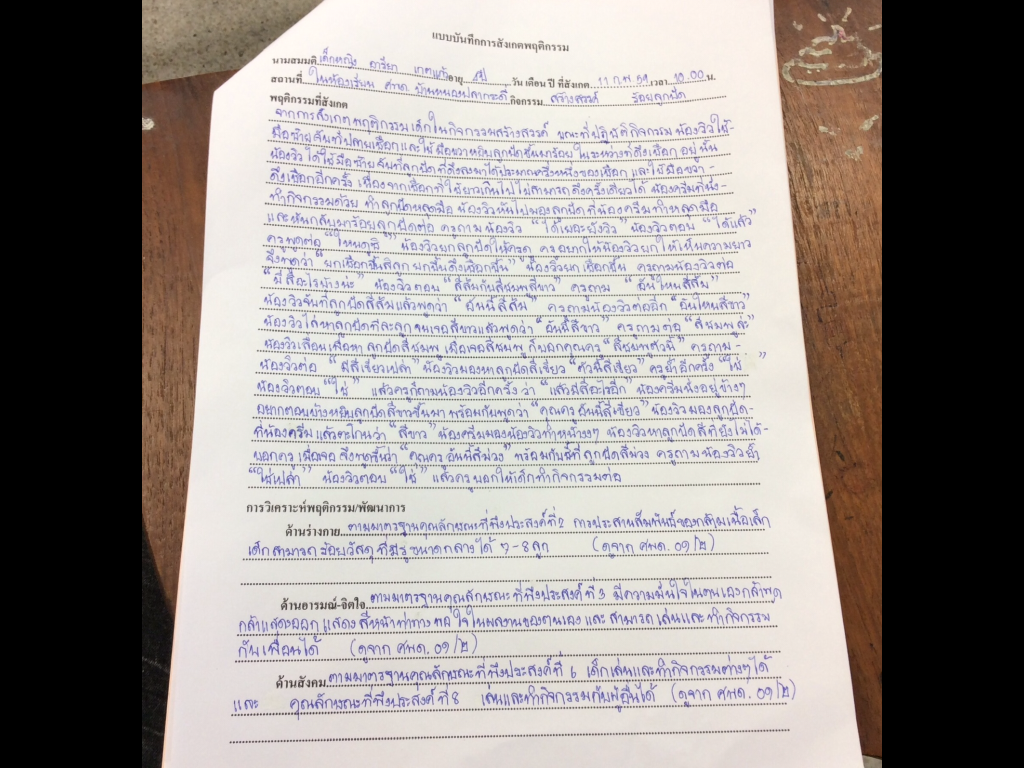 แบบบันทึกการสังเกตพฤติกรรม
นามสมมติ เด็กหญิง ดาริยา เกตแก้ว อายุ วัน เดือน ปี ที่สังเกต 11 ก.พ. 59 เวลา 10.00 น.
สถานที่ ในห้องเรียน ศพด. บ้านหนองปลากระดี่ กิจกรรม สร้างสรรค์ ร้อยลูกปัด
พฤติกรรมที่สังเกต
จากการสังเกตพฤติกรรมเด็กในกิจกรรมสร้างสรรค์ ขณะที่ปฏิบัติกิจกรรม น้องวิวใช้-
มือซ้ายจับที่ปลายเชือกและใช้มือขวาหยิบลูกปัดขึ้นมาร้อย ในระหว่างที่ดึงเชือกอยู่นั้น
น้องวิวได้ใช้มือซ้ายจับที่ลูกปัดที่ดึงลงมาได้ประมาณครึ่งหนึ่งของเชือก และใช้มือขวา-
ดึงเชือกอีกครั้ง เนื่องจากเชือกที่ใช้ยาวเกินไปไม่สามารถดึงครั้งเดียวได้ น้องครีมที่นั่ง-
ทำกิจกรรมด้วย ทำลูกปัดหลุดมือ น้องวิวหันไปมองลูกปัดที่น้องครีมทำหลุดมือ
และหันกลับมาร้อยลูกปัดต่อ ครูถามน้องวิว “ได้เยอะยังวิว” น้องวิวตอบ “ได้แล้ว”
ครูพูดต่อ “ไหนดูซิ” น้องวิวยกลูกปัดให้ครูดู ครูอยากให้น้องวิวยกให้เห็นความยาว
จึงพูดว่า “ยกเชือกขึ้นสิลูก ยกขึ้นดึงเชือกขึ้น” น้องวิวยกเชือกขึ้น ครูถามน้องวิวต่อ
“มีสีอะไรบ้างน่ะ” น้องวิวตอบ “สีส้มกับสีชมพูสีขาว” ครูถาม “อันไหนสีส้ม”
น้องวิวจับที่ลูกปัดสีส้มแล้วพูดว่า “อันนี้สีส้ม” ครูถามน้องวิวต่ออีก “อันไหนสีขาว”
น้องวิวไล่หาลูกปัดทีละลูก จนเจอสีขาวแล้วพูดว่า “อันนี้สีขาว” ครูถามต่อ “สีชมพูล่ะ”
น้องวิวเลื่อนเพื่อหาลูกปัดสีชมพู เมื่อเจอสีชมพูก็บอกคุณครู “สีชมพูตัวนี้” ครูถาม-
น้องวิวต่อ “มีสีเขียวเปล่า” น้องวิวมองหาลูกปัดสีเขียว “ตัวนี้สีเขียว” ครูย้ำอีกครั้ง “ใช่”
น้องวิวตอบ “ใช่” แล้วครูก็ถามน้องวิวอีกครั้งว่า “แล้วมีสีอะไรอีก” น้องครีมนั่งอยู่ข้างๆ
อยากตอบบ้างหยิบลูกปัดสีขาวขึ้นมา พร้อมกับพูดว่า “คุณครูอันนี้สีเขียว” น้องวิวมองลูกปัด-
ที่น้องครีม แล้วตะโกนว่า “สีขาว” น้องครีมมองน้องวิวทำหน้างงๆ น้องวิวหาลูกปัดสีที่ยังไม่ได้-
บอกครู เมื่อเจอ จึงพูดขึ้นว่า “คุณครูอันนี้สีม่วง” พร้อมกับชี้ที่ลูกปัดสีม่วง ครูถามน้องวิวย้ำ
“ใช่เปล่า” น้องวิวตอบ “ใช่” แล้วครูบอกให้เด็กทำกิจกรรมต่อ
การวิเคราะห์พฤติกรรม/พัฒนาการ
ด้านร่างกาย ตามมาตรฐานคุณลักษณะที่พึงประสงค์ที่ 2 การประสานสัมพันธ์ของกล้ามเนื้อเล็ก
เด็กสามารถร้อยวัสดุที่มีรูขนาดกลางได้ 7-8 ลูก (ดูจาก ศพด. 09/2)
ด้านอารมณ์-จิตใจ ตามมาตรฐานคุณลักษณะที่พึงประสงค์ที่ 3 มีความมั่นใจในตนเองกล้าพูด
กล้าแสดงออก แสดงสีหน้าท่าทางพอใจในผลงานของตนเอง และสามารถเล่นและทำกิจกรรม
กับเพื่อนได้ (ดูจาก ศพด. 09/2)
ด้านสังคม ตามมาตรฐานคุณลักษณะที่พึงประสงค์ที่ 6 เด็กเล่นและทำกิจกรรมต่างๆได้
และ คุณลักษณะที่พึงประสงค์ที่ 8 เล่นและทำกิจกรรมกับผู้อื่นได้ (ดูจาก ศพด. 09/2)